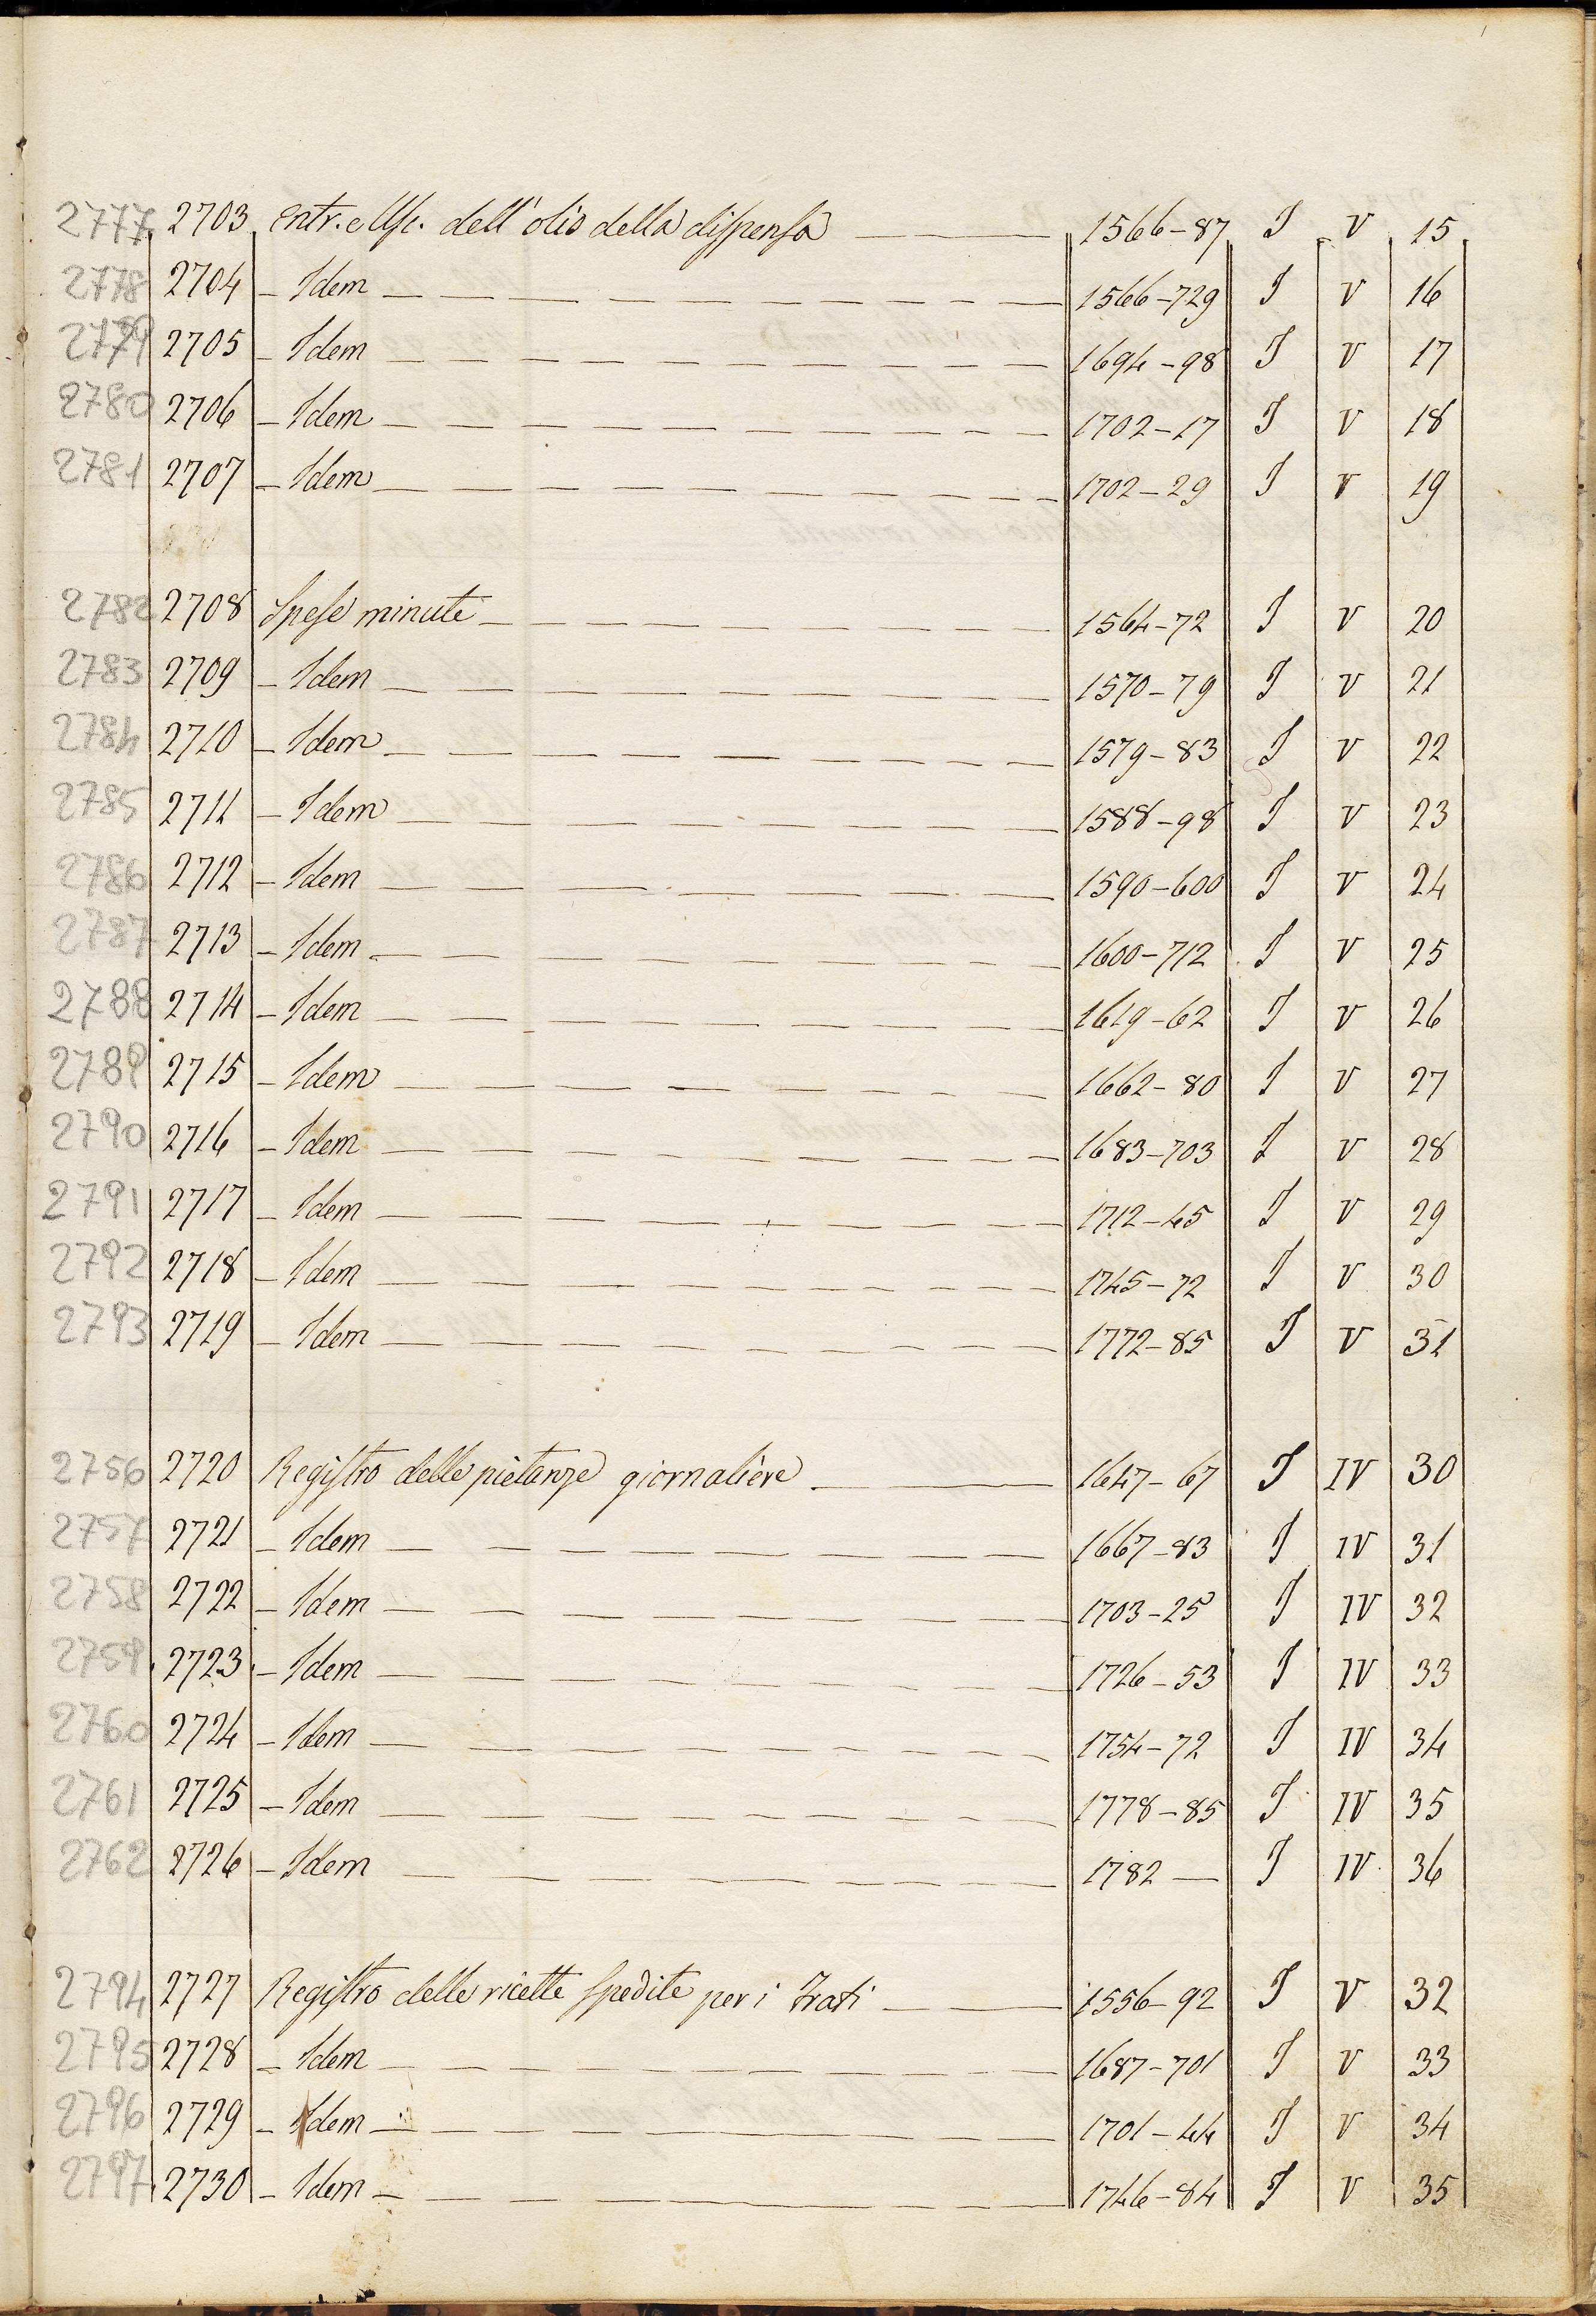 2777 2703 Entr. e Usc. dell' olio della dispensa 1566-87 I V 15
2778 2704 - Idem 1566-729 I V 16
2779 2705 - Idem 1694-98 I V 17
2780 2706 - Idem 1702-17 I V 18
2781 2707 - Idem 1702-29 I V 19
2782 2708 Spese minute 1564-72 I V 20
2783 2709 - Idem 1570-79 I V 21
2784 2710 - Idem 1579-83 I V 22
2785 2711 - Idem 1588-98 I V 23
2786 2712 - Idem 1590-600 I V 24
2787 2713 - Idem 1600-712 I V 25
2788 2714 - Idem 1619-62 I V 26
2789 2715 - Idem 1662-80 I V 27
2790 2716 - Idem 1683-703 I V 28
2791 2717 - Idem 1712-45 I V 29
2792 2718 - Idem 1745-72 I V 30
2793 2719 - Idem 1772-85 I V 31
2756 2720 Registro delle pietanze giornaliere 1647-67 I IV 30
2757 2721 - Idem 1667-83 I IV 31
2758 2722 - Idem 1703-25 I IV 32
2759 2723 - Idem 1726-53 I IV 33
2760 2724 - Idem 1754-72 I IV 34
2761 2725 - Idem 1778-85 I IV 35
2762 2726 - Idem 1782 — I IV 36
2794 2727 Registro delle ricette spedite per i Frati 1556-92 I V 32
2795 2728 - Idem 1687-701 I V 33
2796 2729 - Idem 1701-44 I V 34
2797 2730 - Idem 1746-84 I V 35